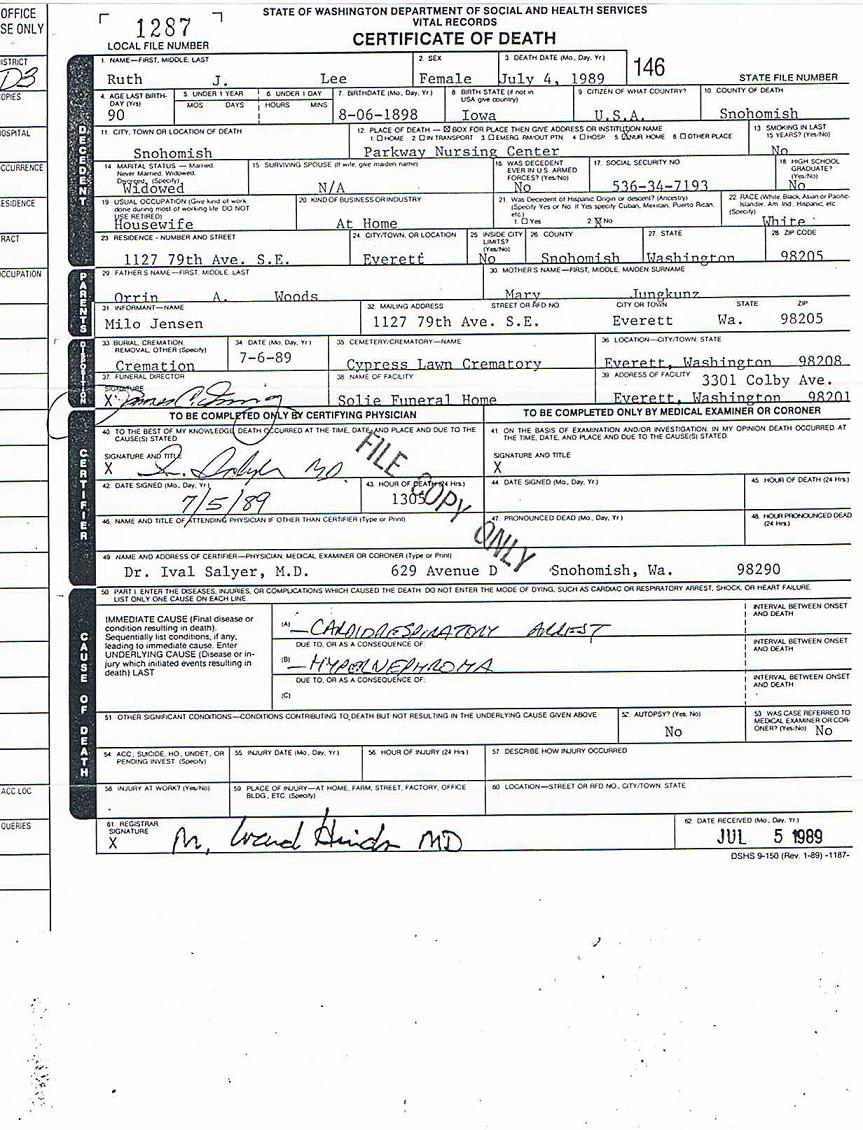 OFFICE
SE ONLY
1287
LOCAL FILE NUMBER
STATE OF WASHINGTON DEPARTMENT OF SOCIAL AND HEALTH SERVICES
VITAL RECORDS
CERTIFICATE OF DEATH
146
STATE FILE NUMBER
ISTRICT
D3
OPIES
OSPITAL
CCURRENCE
ESIDENCE
RACT
CCUPATION
ACC LOC
QUERIES
DECEDENT
1. NAME—FIRST, MIDDLE, LAST
Ruth J. Lee
2. SEX
Female
3. DEATH DATE (Mo, Day, Yr.)
July 4, 1989
4. AGE LAST BIRTH-
DAY (Yrs)
90
5. UNDER 1 YEAR
MOS DAYS
6. UNDER 1 DAY
HOURS MINS
7. BIRTHDATE (Mo., Day, Yr.)
8-06-1898
8. BIRTH STATE (If not in
USA give country)
Iowa
9. CITIZEN OF WHAT COUNTRY?
U.S.A.
10. COUNTY OF DEATH
Snohomish
11. CITY, TOWN OR LOCATION OF DEATH
Snohomish
12. PLACE OF DEATH — ☒ BOX FOR PLACE THEN GIVE ADDRESS OR INSTITUTION NAME
1 ☐ HOME 2 ☐ IN TRANSPORT 3 ☐ EMERG RM/OUT PTN. 4 ☐ HOSP 5 ☒ NUR HOME 6 ☐ OTHER PLACE
Parkway Nursing Center
13 SMOKING IN LAST
15 YEARS? (Yes/No)
No
14 MARITAL STATUS — Married,
Never Married, Widowed,
Divorced, (Specify)
Widowed
15 SURVIVING SPOUSE (If wife, give maiden name)
N/A
16 WAS DECEDENT
EVER IN U.S. ARMED
FORCES? (Yes/No)
No
17. SOCIAL SECURITY NO.
536-34-7193
18. HIGH SCHOOL
GRADUATE?
(Yes/No)
No
19 USUAL OCCUPATION (Give kind of work
done during most of working life. DO NOT
USE RETIRED)
Housewife
20. KIND OF BUSINESS OR INDUSTRY
At Home
21. Was Decedent of Hispanic Origin or descent? (Ancestry)
(Specify Yes or No. If Yes specify Cuban, Mexican, Puerto Rican,
etc.)
1. ☐ Yes 2. ☒ No
22. RACE (White, Black, Asian or Pacific-
Islander, Am. Ind., Hispanic, etc
(Specify)
White
23 RESIDENCE - NUMBER AND STREET
1127 79th Ave. S.E.
24. CITY/TOWN, OR LOCATION
Everett
25 INSIDE CITY
LIMITS?
(Yes/No)
No
26 COUNTY
Snohomish
27. STATE
Washington
28. ZIP CODE
98205
PARENTS
29 FATHER'S NAME—FIRST, MIDDLE, LAST
Orrin A. Woods
30. MOTHER'S NAME—FIRST, MIDDLE, MAIDEN SURNAME
Mary Jungkunz
31. INFORMANT—NAME
Milo Jensen
32. MAILING ADDRESS STREET OR RFD NO. CITY OR TOWN STATE ZIP
1127 79th Ave. S.E. Everett Wa. 98205
33 BURIAL, CREMATION,
REMOVAL, OTHER (Specify)
Cremation
34. DATE (Mo, Day, Yr.)
7-6-89
35 CEMETERY/CREMATORY—NAME
Cypress Lawn Crematory
36 LOCATION—CITY/TOWN, STATE
Everett, Washington 98208
37. FUNERAL DIRECTOR
SIGNATURE
X
38. NAME OF FACILITY
Solie Funeral Home
39. ADDRESS OF FACILITY
3301 Colby Ave.
Everett, Washington 98201
CERTIFIER
TO BE COMPLETED ONLY BY CERTIFYING PHYSICIAN
TO BE COMPLETED ONLY BY MEDICAL EXAMINER OR CORONER
40. TO THE BEST OF MY KNOWLEDGE, DEATH OCCURRED AT THE TIME, DATE, AND PLACE AND DUE TO THE
CAUSE(S) STATED
SIGNATURE AND TITLE
X I. Salyer MD
41. ON THE BASIS OF EXAMINATION AND/OR INVESTIGATION, IN MY OPINION DEATH OCCURRED AT
THE TIME, DATE, AND PLACE AND DUE TO THE CAUSE(S) STATED
SIGNATURE AND TITLE
X
42. DATE SIGNED (Mo., Day, Yr.)
7/5/89
43. HOUR OF DEATH (24 Hrs)
1305
44 DATE SIGNED (Mo., Day, Yr.)
45. HOUR OF DEATH (24 Hrs.)
46. NAME AND TITLE OF ATTENDING PHYSICIAN IF OTHER THAN CERTIFIER (Type or Print)
47. PRONOUNCED DEAD (Mo., Day, Yr.)
48. HOUR PRONOUNCED DEAD
(24 Hrs.)
FILE COPY ONLY
49 NAME AND ADDRESS OF CERTIFIER—PHYSICIAN, MEDICAL EXAMINER OR CORONER (Type or Print)
Dr. Ival Salyer, M.D. 629 Avenue D Snohomish, Wa. 98290
CAUSE OF DEATH
50 PART I. ENTER THE DISEASES, INJURIES, OR COMPLICATIONS WHICH CAUSED THE DEATH. DO NOT ENTER THE MODE OF DYING, SUCH AS CARDIAC OR RESPIRATORY ARREST, SHOCK, OR HEART FAILURE.
LIST ONLY ONE CAUSE ON EACH LINE.
IMMEDIATE CAUSE (Final disease or
condition resulting in death).
Sequentially list conditions, if any,
leading to immediate cause. Enter
UNDERLYING CAUSE (Disease or in-
jury which initiated events resulting in
death) LAST
(A) CARDIORESPIRATORY ARREST
INTERVAL BETWEEN ONSET
AND DEATH
DUE TO, OR AS A CONSEQUENCE OF:
(B) HYPERNEPHROMA
INTERVAL BETWEEN ONSET
AND DEATH
DUE TO, OR AS A CONSEQUENCE OF:
(C)
INTERVAL BETWEEN ONSET
AND DEATH
51 OTHER SIGNIFICANT CONDITIONS—CONDITIONS CONTRIBUTING TO DEATH BUT NOT RESULTING IN THE UNDERLYING CAUSE GIVEN ABOVE
52. AUTOPSY? (Yes, No)
No
53 WAS CASE REFERRED TO
MEDICAL EXAMINER OR COR-
ONER? (Yes/No) No
54 ACC., SUICIDE, HO., UNDET., OR
PENDING INVEST. (Specify)
55. INJURY DATE (Mo., Day, Yr.)
56. HOUR OF INJURY (24 Hrs)
57. DESCRIBE HOW INJURY OCCURRED
58. INJURY AT WORK? (Yes/No)
59. PLACE OF INJURY—AT HOME, FARM, STREET, FACTORY, OFFICE
BLDG., ETC. (Specify)
60 LOCATION—STREET OR RFD NO., CITY/TOWN, STATE
61 REGISTRAR
SIGNATURE
X M. Ward Hinds MD
62. DATE RECEIVED (Mo., Day, Yr.)
JUL 5 1989
DSHS 9-150 (Rev. 1-89) -1187-